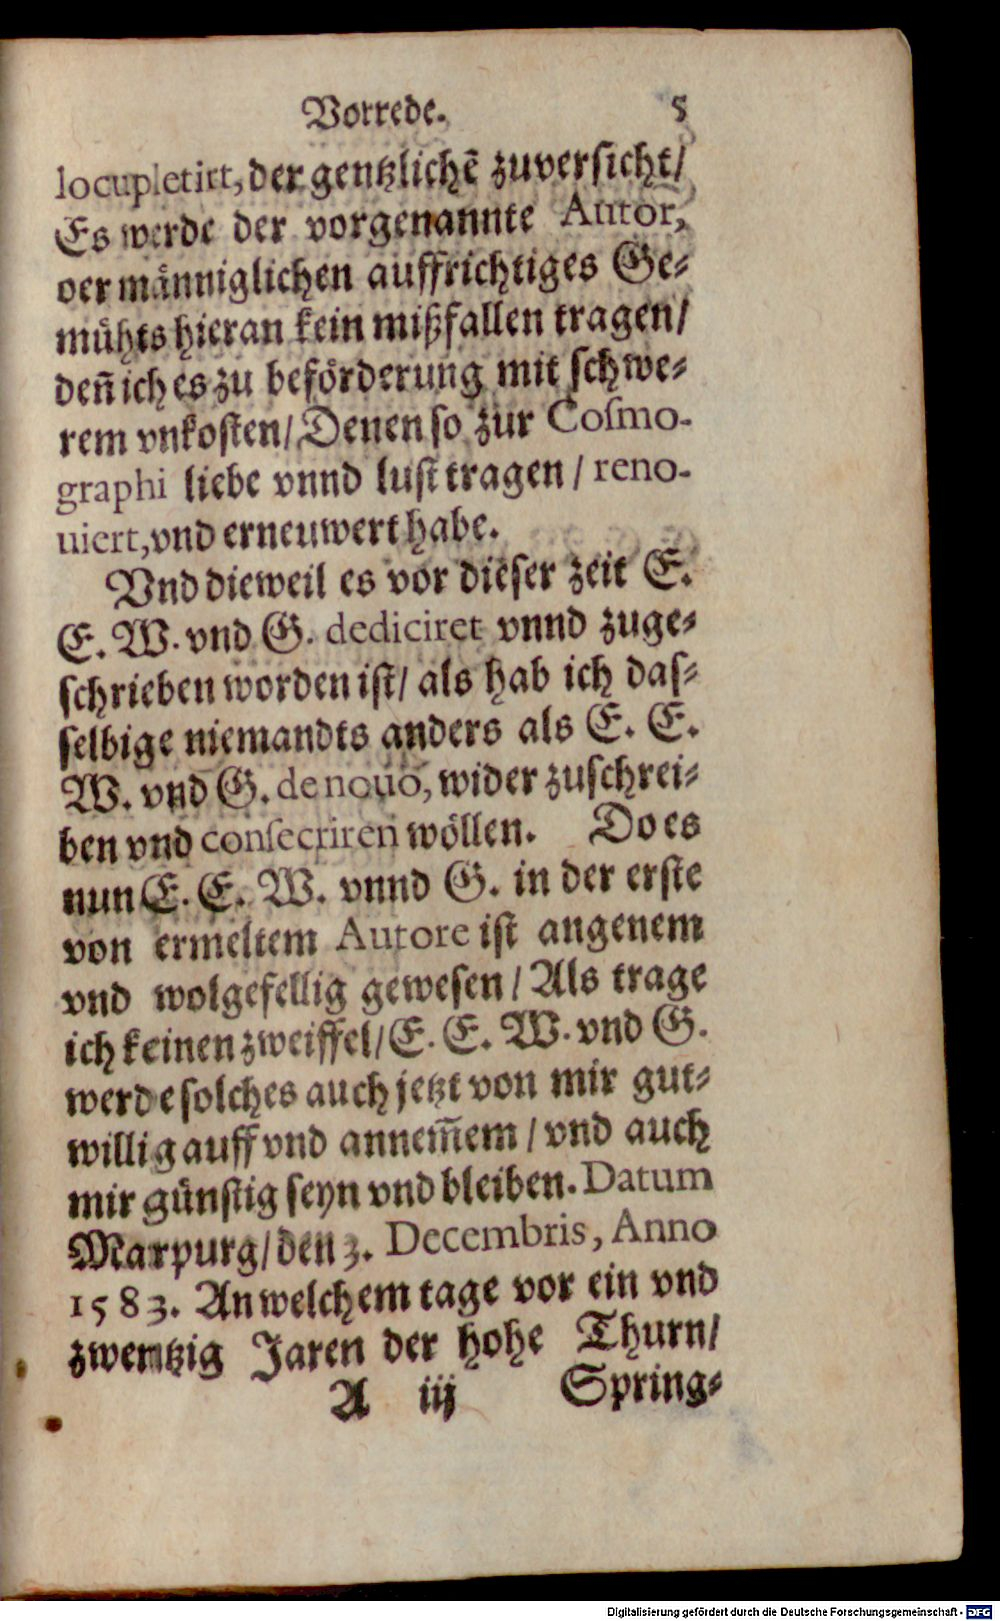 Vorrede. 5
locupletirt, der gentzlichẽ zuversicht/
Es werde der vorgenannte Autor,
oer männiglichen auffrichtiges Ge-
mühts hieran kein mißfallen tragen/
deñ ich es zu beförderung mit schwe-
rem vnkosten/ Denen so zur Cosmo-
graphi liebe vnnd lust tragen / reno-
uiert, vnd erneuwert habe.
Vnd dieweil es vor dieser zeit E.
E. W. vnd G. dediciret vnnd zuge-
schrieben worden ist/ als hab ich das-
selbige niemandts anders als E. E.
W. vnd G. de nouo, wider zuschrei-
ben vnd consecriren wöllen. Do es
nun E. E. W. vnnd G. in der erste
von ermeltem Autore ist angenem
vnd wolgefellig gewesen / Als trage
ich keinen zweiffel/ E. E. W. vnd G.
werde solches auch jetzt von mir gut-
willig auff vnd annem̃em / vnd auch
mir günstig seyn vnd bleiben. Datum
Marpurg/ den 3. Decembris, Anno
1583. An welchem tage vor ein vnd
zwentzig Jaren der hohe Thurn/
A iij Spring-
Digitalisierung gefördert durch die Deutsche Forschungsgemeinschaft - DFG